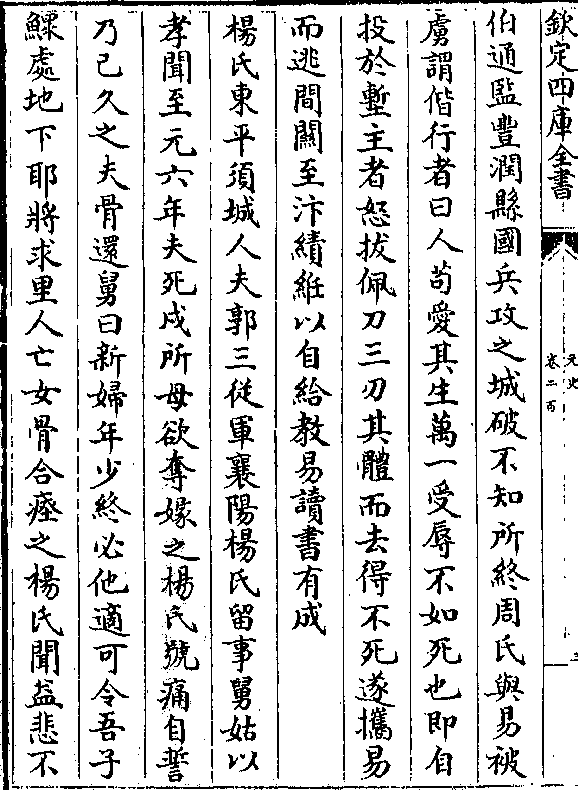 欽定四庫全書
元史
卷二百
三
伯通監豐潤縣國兵攻之城破不知所終周氏與易被
虜謂偕行者曰人苟愛其生萬一受辱不如死也即自
投於塹主者怒拔佩刀三刃其體而去得不死遂攜易
而逃間關至汴績紝以自給教易讀書有成
楊氏東平須城人夫郭三從軍襄陽楊氏留事舅姑以
孝聞至元六年夫死戍所母欲奪嫁之楊氏號痛自誓
乃已久之夫骨還舅曰新婦年少終必他適可令吾子
鰥處地下耶將求里人亡女骨合瘞之楊氏聞益悲不